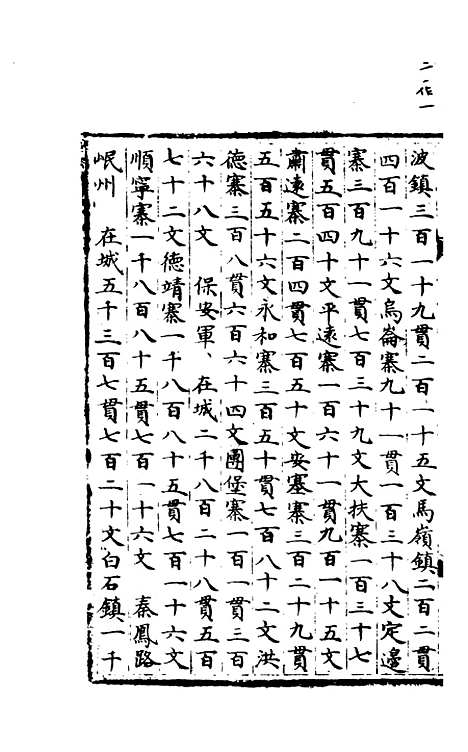 二作一
波鎮三百一十九貫二百一十五文馬嶺鎮二百二貫
四百一十六文烏崙寨九十一貫一百三十八文定邊
寨三百九十一貫七百三十九文大扶寨一百三十七
貫五百四十文平遠寨一百六十一貫九百一十五文
肅遠寨二百四貫七百五十文安塞寨三百二十九貫
五百五十六文永和寨三百五十貫七百八十二文洪
德寨三百八貫六百六十四文團堡寨一百一貫三百
六十八文 保安軍、在城二千八百二十八貫五百
七十二文德靖寨一千八百八十五貫七百一十六文
順寧寨一千八百八十五貫七百一十六文 秦鳳路
岷州 在城五千三百七貫七百二十文白石鎮一千